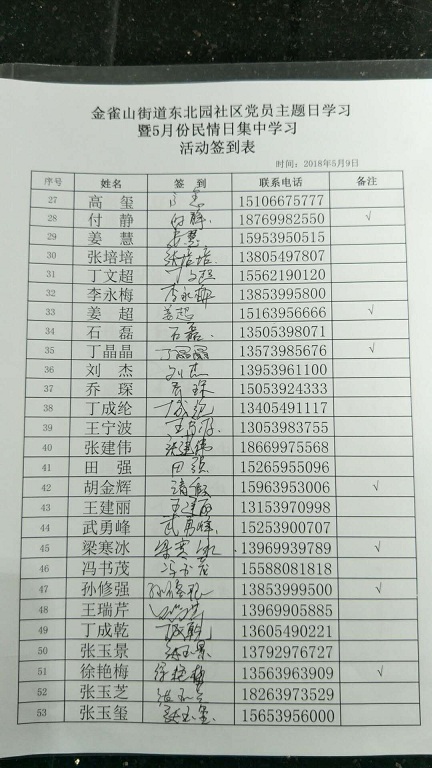 金雀山街道东北园社区党员主题日学习
暨5月份民情日集中学习
活动签到表
时间：2018年5月9日
序号 姓名 签 到 联系电话 备注
27 高 玺 15106675777
28 付 静 付静 18769982550 √
29 姜 慧 姜慧 15953950515
30 张培培 张培培 13805497807
31 丁文超 丁文超 15562190120
32 李永梅 李永梅 13853995800
33 姜 超 姜超 15163956666 √
34 石 磊 石磊 13505398071
35 丁晶晶 丁晶晶 13573985676 √
36 刘 杰 刘杰 13953961100
37 乔 琛 15053924333
38 丁成纶 13405491117
39 王宁波 13053983755
40 张建伟 张建伟 18669975568
41 田 强 田强 15265955096
42 胡金辉 15963953006 √
43 王建丽 王建丽 13153970998
44 武勇峰 武勇峰 15253900707
45 梁寒冰 梁寒冰 13969939789 √
46 冯书茂 冯书茂 15588081818
47 孙修强 孙修强 13853999500 √
48 王瑞芹 13969905885
49 丁成乾 丁成乾 13605490221
50 张玉景 张玉景 13792976727
51 徐艳梅 徐艳梅 13563963909 √
52 张玉芝 张玉芝 18263973529
53 张玉玺 张玉玺 15653956000